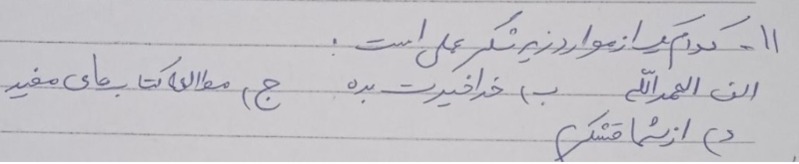 ۱۱- کدام یک از موارد زیر شکر عملی است :
الف) الحمدالله ب) خدا خیرت بده ج) مطالعه کتاب های مفید
د) از شما متشکرم